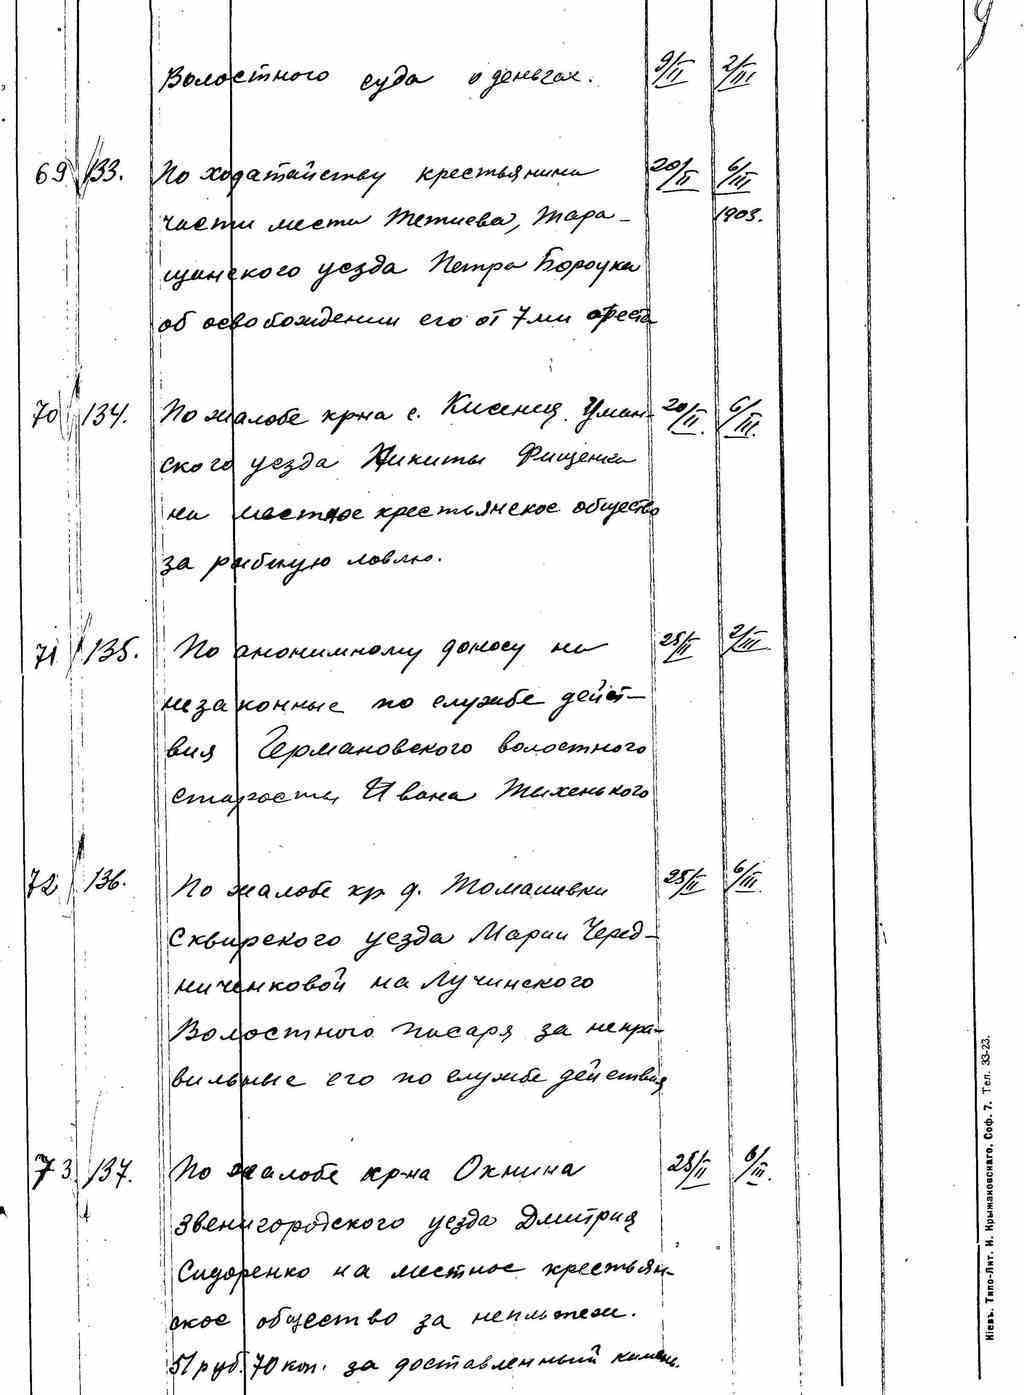 9
Волостного суда о деньгах. 9/II 2/III
69 133. По ходатайству крестьянина 20/II 6/III
части места Тетиева, Тара- 1903.
щанского уезда Петра
об освобождении его от 7 ми ареста
70 134. По жалобе кр-на с. Уман- 20/II. 6/III.
ского уезда Никиты Фищенка
на местное крестьянское общество
за рыбную ловлю.
71 135. По анонимному доносу на 25/II 2/III
незаконные по службе дейст-
вия Германовского волостного
старосты Ивана Тихенького
72 136. По жалобе кр д. Томашивки 25/II 6/III
Сквирского уезда Марии Черед-
ниченковой на Лучинского
Волостного писаря за непра-
вильные его по службе действия
73 137. По жалобе кр-на Окнина 25/II 6/III.
Звенигородского уезда Дмитрия
Сидоренко на местное крестьян-
ское общество за неплатеж.
51 руб. 70 коп. за доставленный камень.
Кіевъ. Типо-Лит. И. Крыжановскаго, Соф. 7. Тел. 33-23.